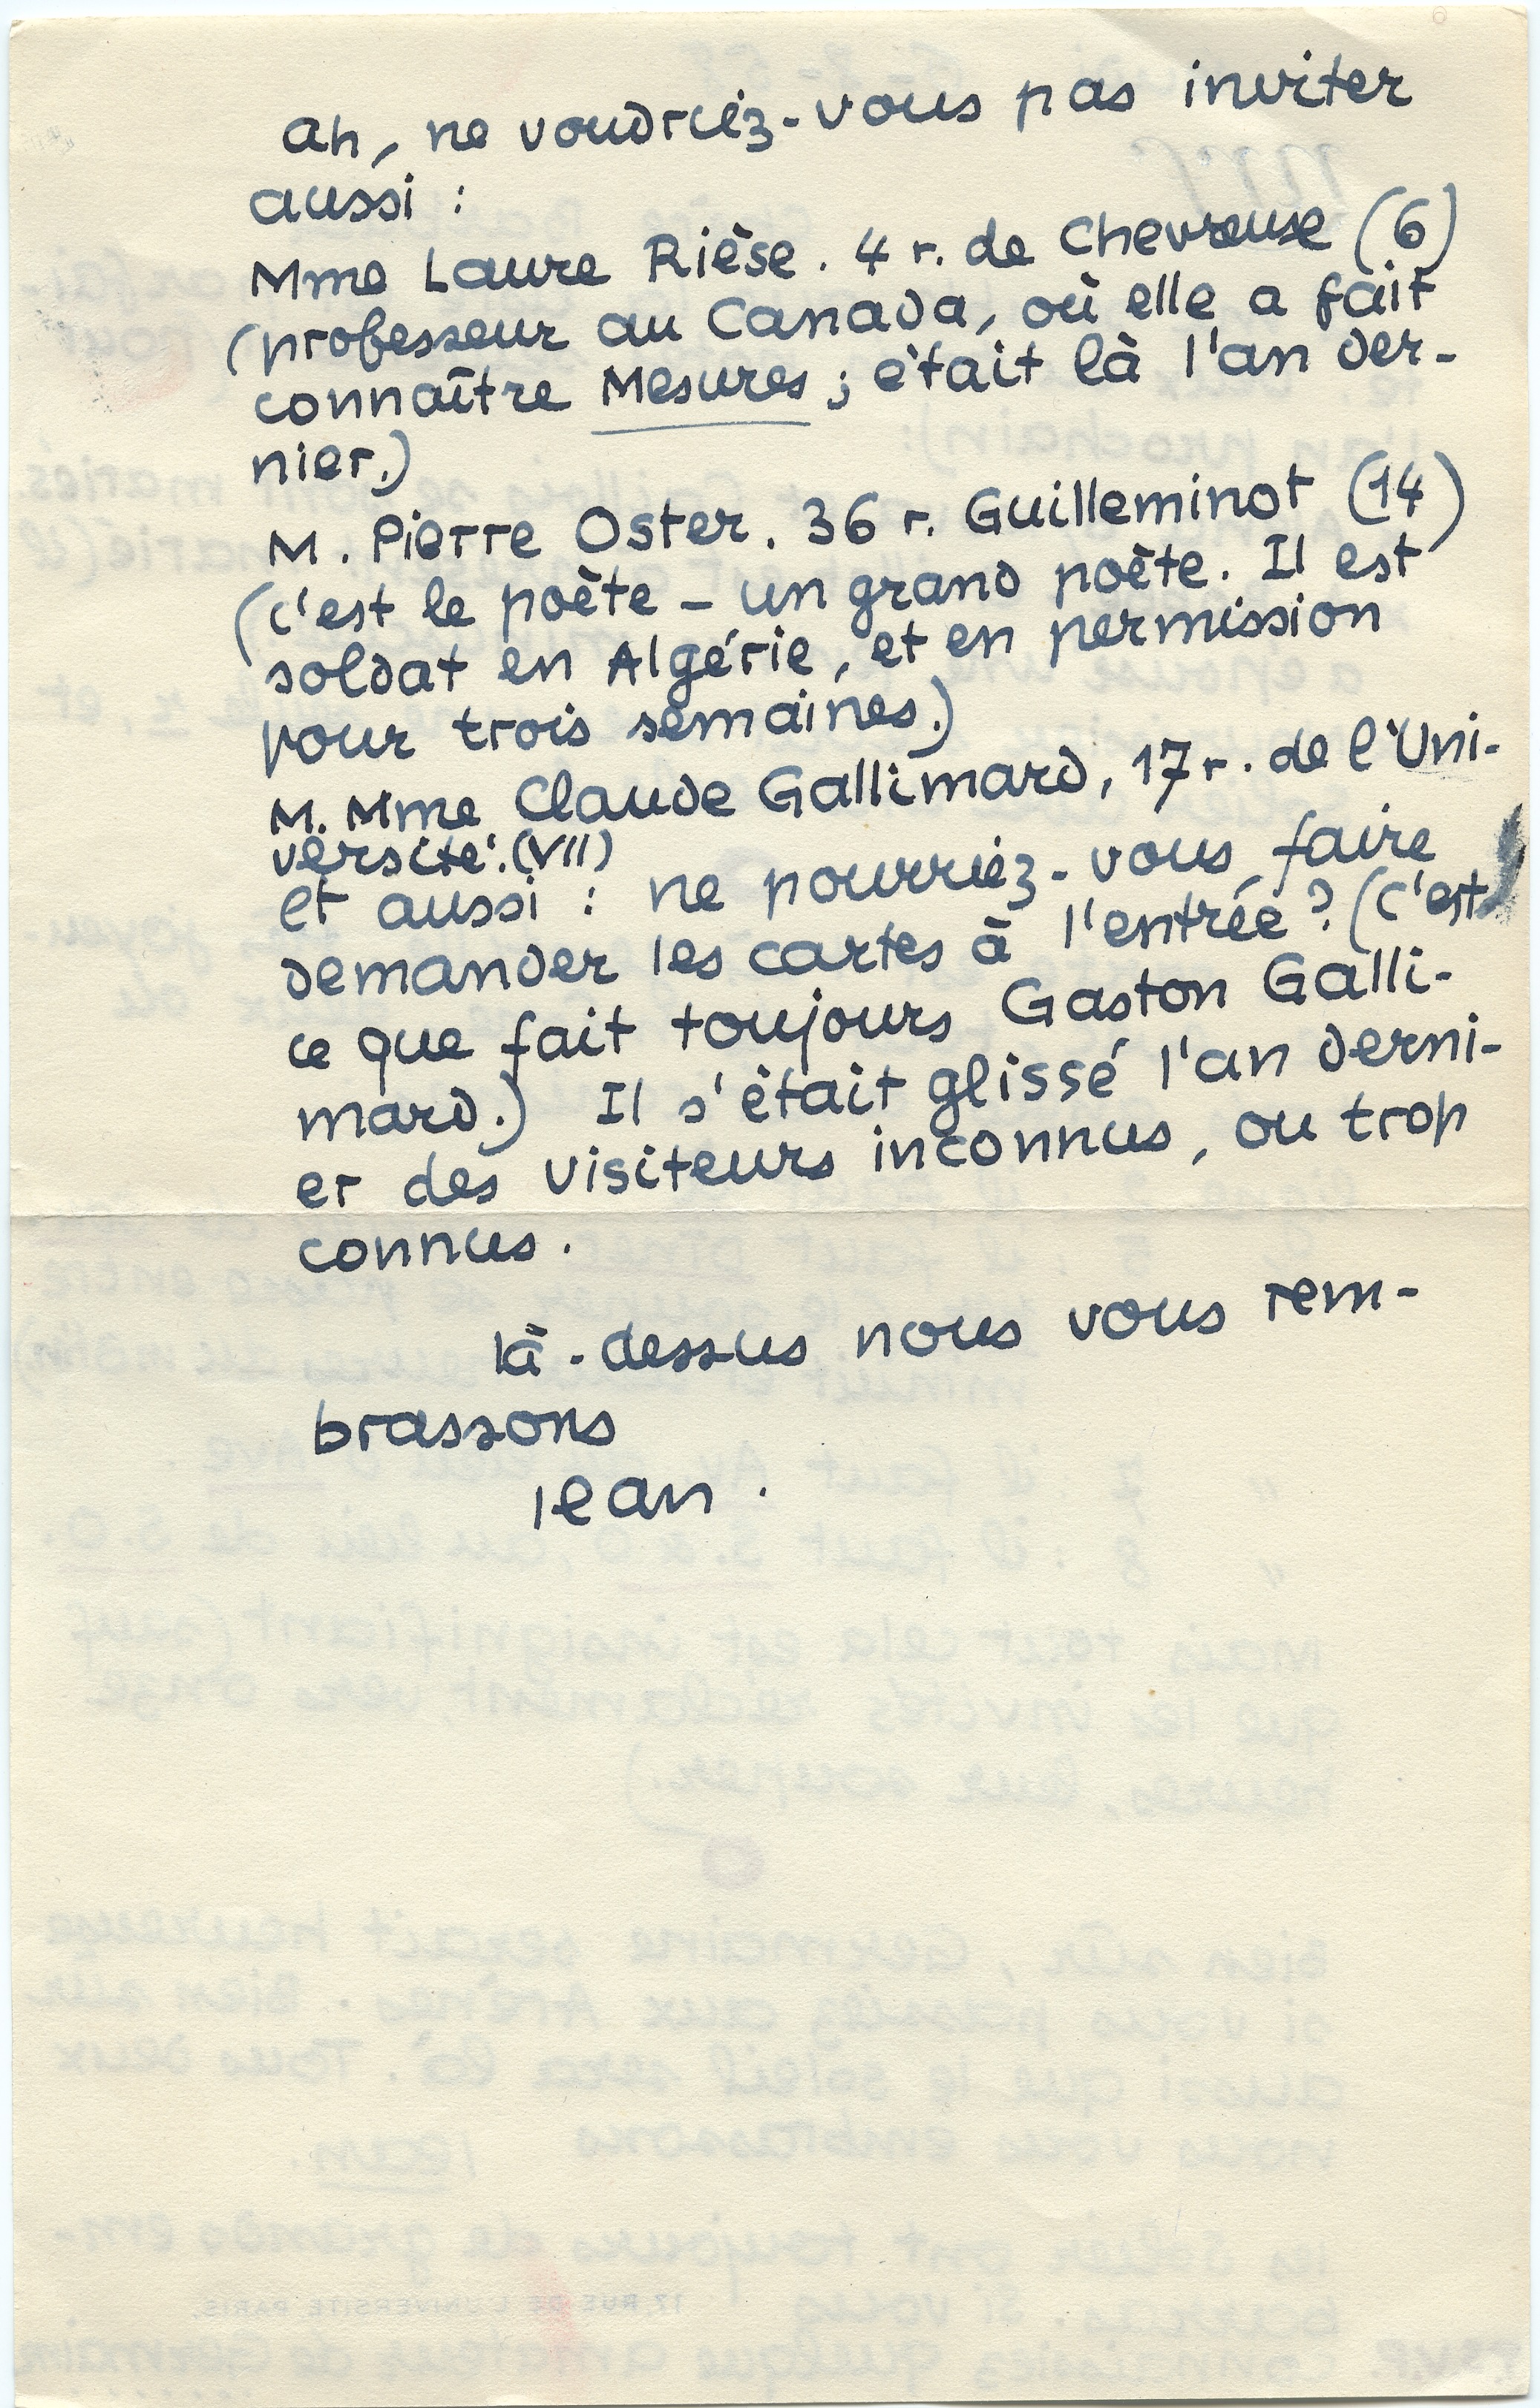 ah, ne voudriez-vous pas inviter
aussi :
Mme Laure Rièse. 4 r. de Chevreuse (6)
(professeur au Canada, où elle a fait
connaître Mesures ; était là l'an der-
nier.)
M. Pierre Oster. 36 r. Guilleminot (14)
(c'est le poète - un grand poète. Il est
soldat en Algérie, et en permission
pour trois semaines.)
M. Mme Claude Gallimard, 17 r. de l'Uni-
versité. (VII)
et aussi : ne pourriez-vous faire
demander les cartes à l'entrée ? (c'est
ce que fait toujours Gaston Galli-
mard.) Il s'était glissé l'an derni-
er des visiteurs inconnus, ou trop
connus.
là-dessus nous vous rem-
brassons
Jean.